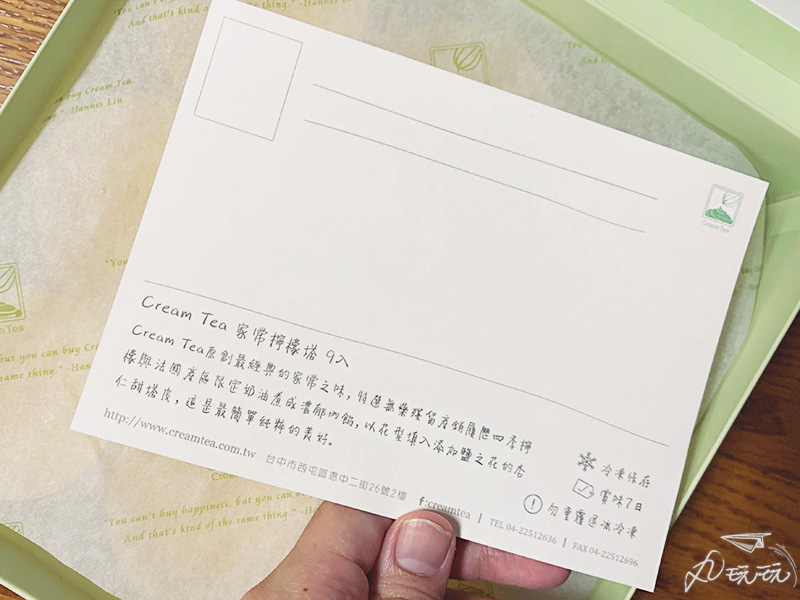 "You can't buy happiness, but you
And that's kind of the same thing." -Hannes Lin
buy Cream Tea
-Hannes Lin
Cream Tea
Cream Tea 家常檸檬塔 9入
Cream Tea原創最經典的家常之味，特選無藥殘留產銷履歷四季檸
檬與法國產區限定奶油煮成濃郁內餡，以花型填入添加鹽之花的杏
仁甜塔皮，這是最簡單純粹的美好。
冷凍保存
賞味7日
勿重覆退冰冷凍
http://www.creamtea.com.tw 台中市西屯區惠中二街26號2樓 f:creamtea | TEL 04-22512636 | FAX 04-22512696
Tea
but you can buy Cream
same thing."
"You can't buy happiness, but you can
And that's kind of the same thing." -Hannes
玩玩